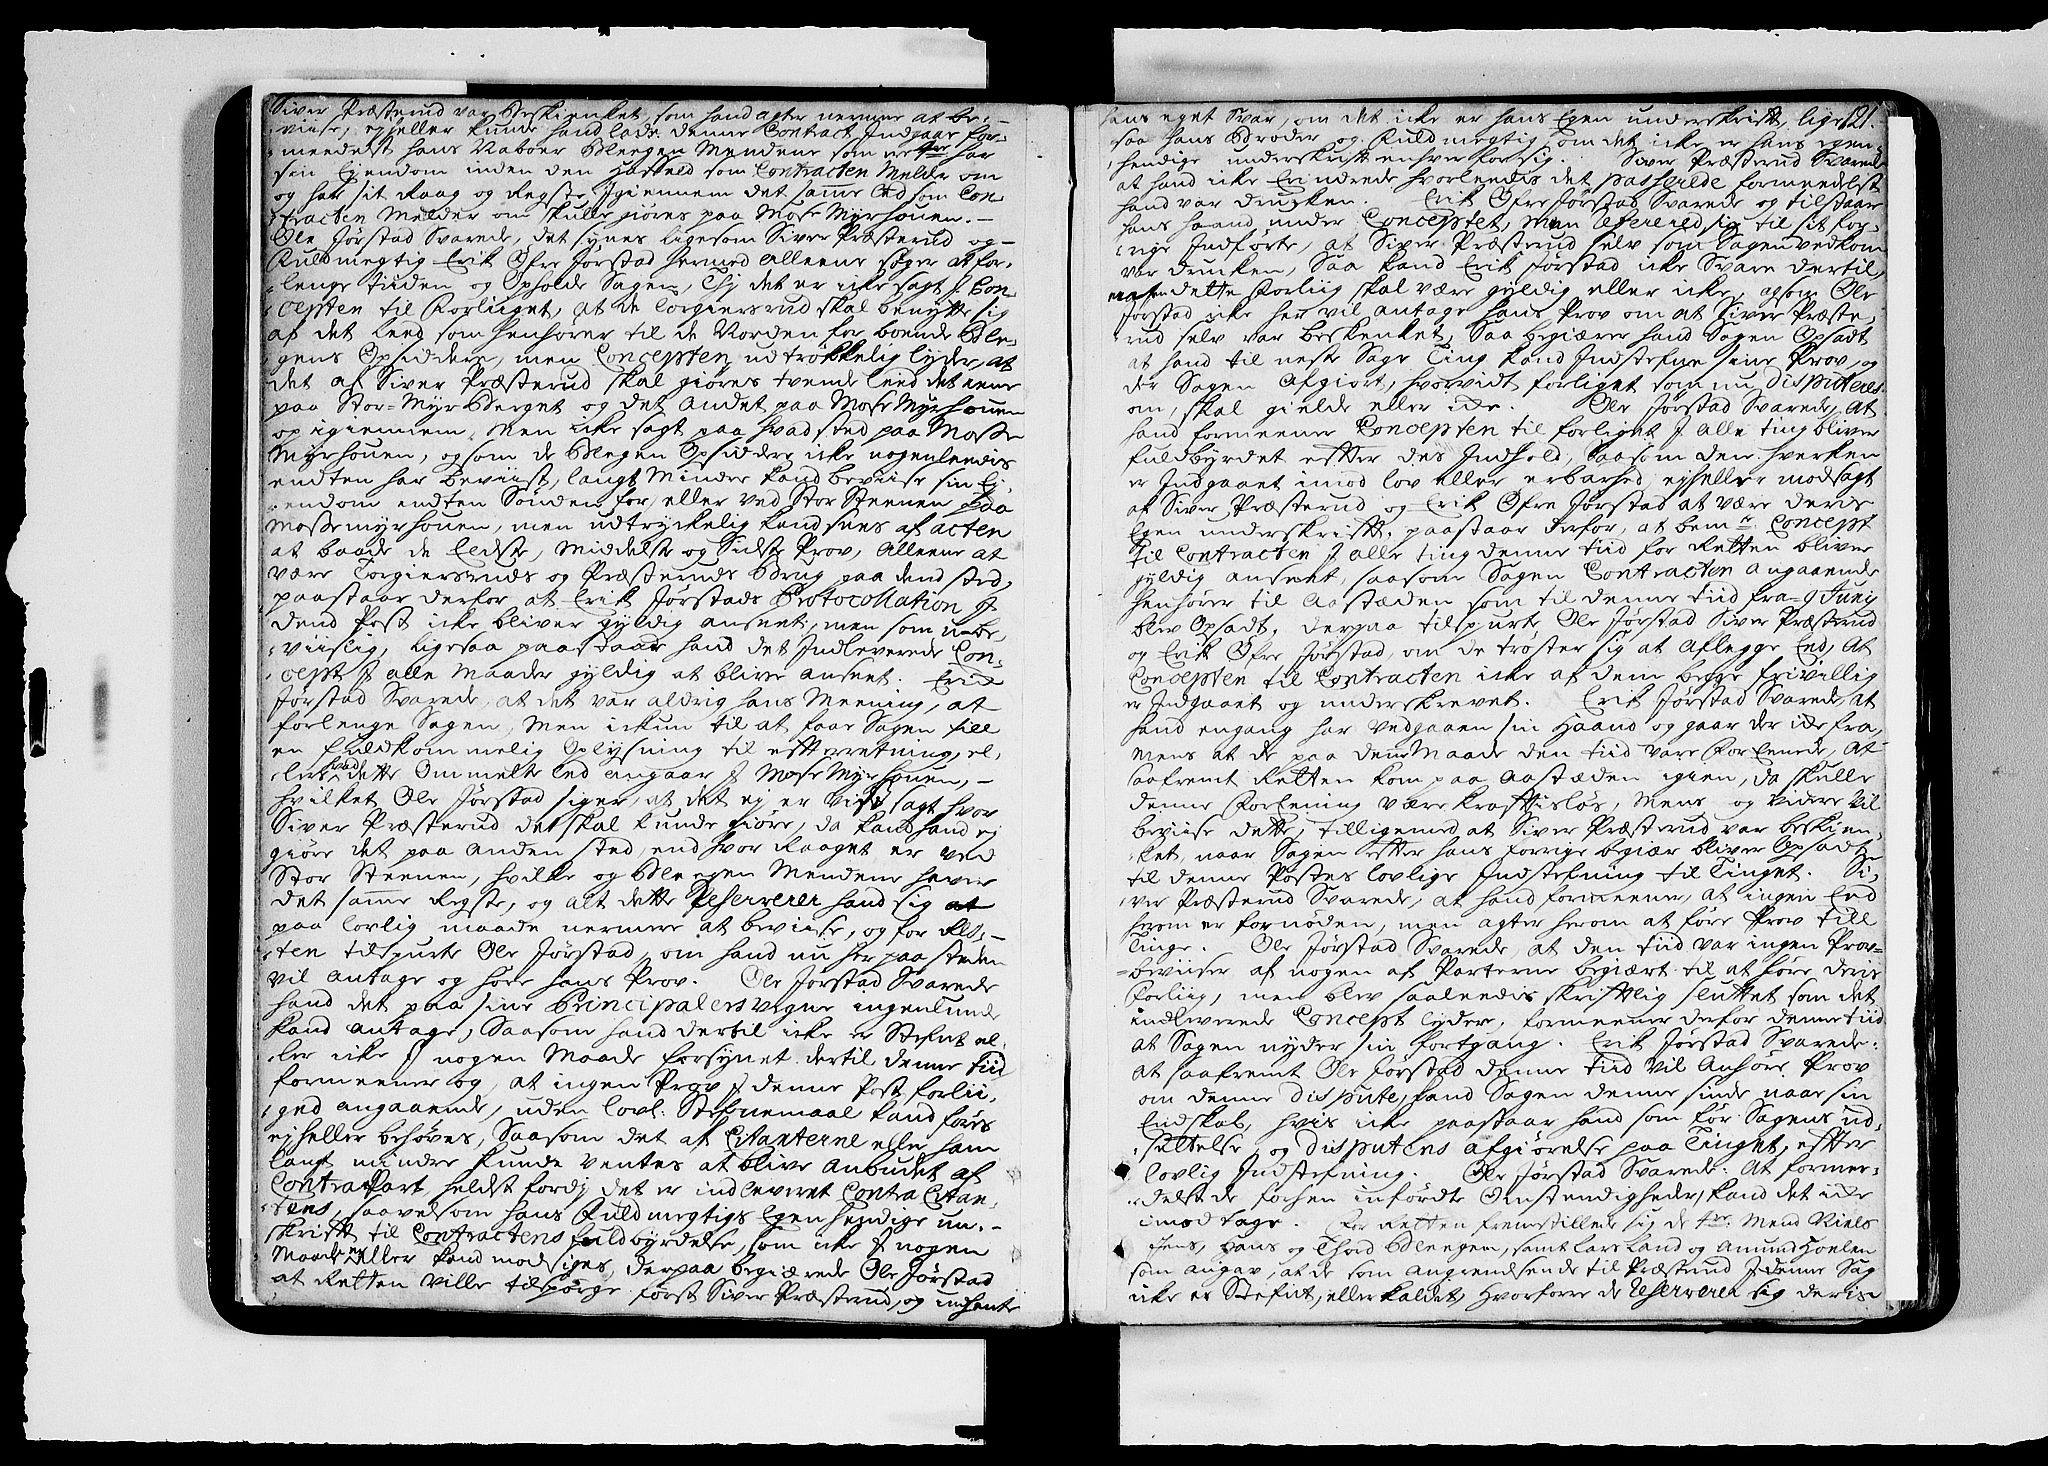 Siver Præsterud var Beskienket, som hand agter nermer at be-
viise, ej heller kunde hand lade denne Contract Indgaae for-
meedelst hans Naboer Bleegen Mendene som
sin Ejendom inden den Hasteld som Contracten Melder om
og har sit Raag og Regste Igiennem det samme sted som Con-
tracten Melder om skulle giøres paa Mose Myrhouen.
Ole Jørstad Svarede, det synes ligesom Siver Præsterud og
Fuldmegtig Erik Øfre Jørstad hermed alleene søger at for-
lenge tiiden og Opholde Sagen, Thj det er icke sagt J Con-
cepten til Forliiget, at de Torgiersrud skal benytte sig
af det leed som henhører til de Norden for boende Ble-
gens Opsiddere, men Concepten udtrøkkelig lyder, at
det af Siver Præsterud skal giøres tvende leed det eene
paa Stor-Myr Berget og det andet paa Mose Myrhouen
op igiennem, Men icke sagt paa hvad sted paa Mosse
Myrhouen, og som de Blegen Opsiddere icke nogenleedis
endten har beviist, langt Minder kand beviise sin Ei-
endom endten Sønden for eller ved Stor Steenen paa
Mossemyrhouen, men udtryckelig kand sees af acten
at baade de Eedste, Middelste og Sidste Prov, Alleene at
være Torgiersruds og Præsteruds Brug paa dend sted,
paastaar derfor at Erik Jørstads Protocollation J
dend Post icke bliver gyldig anseet, men som u-be-
viislig, ligesaa paastaar hand det Indleverede Con-
cept J alle Maader gyldig at blive anseet. Erik
Jørstad Svarede, at det var aldrig hans Meening, at
forlenge Sagen, Men ickun til at faae Sagen till
en fuldkommelig Oplysning til efterretning, el-
ler hvad dette Ommelte leed angaar J Mose Myrhouen,
hvilket Ole Jørstad siger, at det ej er vist sagt hvor
Siver Præsterud det skal kunde giøre, da kand hand ej
giøre det paa anden sted, end hvor Raaget er ved
Stor Steenen, hvilke og Bleegen Mendene haver
det samme Regste, og alt dette Reserverer hand sig
paa lovlig maade nermere at beviise, og for Ret-
ten tilspurte Ole Jørstad, om hand nu her paa steden
vil antage og høre hans Prov. Ole Jørstad Svarede
hand det paa sine Principalers vegne ingenlunde
kand antage, Saasom hand dertil icke er Stefnt el-
ler icke J nogen Maade forsynet dertil denne tiid
formeener og, at ingen Prov J denne Post forlii-
ged angaaende, uden lovl: Stefnemaal kand føres
ej heller behøves, Saasom det af Citanterne eller ham
langt mindre kunde ventes at blive anbudet af
Contra Part, heldst fordj det er indleveret Contra Citan-
tens, saavelsom hans Fuldmegtigs Egenhendige un-
skrift til Contractens fuldbyrdelse, som icke J nogen
Maade eller kand modsiges, derpaa begiærede Ole Jørstad
at Retten ville tilspørge først Siver Præsterud, og indhente
hans eget Svar, om det icke er hans Egen underskrift, lige 121.
saa hans Broder og Fuldmegtig om det icke er hans egen-
hendige underskrift enhver for sig. Siver Præsterud Svarede
at hand icke Erindrede hvorleedis det passerede formeedelst
hand var drucken. Erik Øfre Jørstad Svarede og tilstaar
hans haand under Conceptet, Men refererede sig til sit for-
rige Indførte, at Siver Præsterud selv som Sagen vedkom
var drucken, Saa kand Erik Jørstad icke Svare dertil,
dette Forliig skal være gyldig eller icke, og som Ole
Jørstad icke her vil antage hans Prov om at Siver Præste-
rud selv var beskenket, Saa begiærer hand Sagen Opsadt
at hand til neste Sage Ting kand Indstefne sine Prov, og
der Sagen afgiort, hvorvidt forliget som nu disputeres
om, skal gielde eller icke. Ole Jørstad Svarede, At
hand formeener Concepten til forliget J alle ting bliver
fuldbyrdet efter des Indhold, saasom den hverken
er Indgaaet imod lov eller erbarhed, ej heller modsagt
af Siver Præsterud og Erik Øfre Jørstad at være deris
Egen underskrift, paastaar derfor, at bem:te Concept
til Contracten J alle ting denne tiid for Retten bliver
gyldig anseet, saasom Sagen Contracten angaaende
henhører til aastæden som til denne tiid fra 9 Junij
blev Opsadt. Derpaa tilspurte Ole Jørstad Siver Præsterud
og Erik Øfre Jørstad, om de trøster sig at aflegge Eed, At
Concepten til Contracten icke af dem begge frivillig
er Indgaaet og underskrevet. Erik Jørstad Svarede, at
hand engang har vedgaaen sin Haand og gaar der icke fra,
mens at de paa denne Maade den tiid vare Forlenede, at
saafremt Retten kom paa aastæden igien, da skulle
denne Forlening være kraftisløs, Mens og Videre vil
beviise dette, tilligemed at Siver Præsterud var beskien-
ket, naar Sagen efter hans forrige begiær bliver Opsadt
til denne Postes lovlige Indstefning til Tinget. Si-
ver Præsterud Svarede, at hand formeener, at ingen Eed
herom er fornøden, men agter herom at føre Prov till
Tinge. Ole Jørstad Svarede, at den tiid var ingen Prov-
beviiser af nogen af Parterne begiært til at høre deris
Forliig, men blev saaleedis skriftlig sluttet som det
indleverede Concept lyder, formeener derfor denne tiid
at Sagen nyder sin fortgang. Erik Jørstad Svarede:
At saafremt Ole Jørstad denne tiid vil Anhøre Prov
om denne dispute, kand Sagen denne sinde naae sin
Endskab, hvis icke paastaar hand som før Sagens ud-
settelse og disputens afgiørelse paa Tinget, efter
lovlig Indstefning. Ole Jørstad Svarede: At former-
delst de forhen indførte Omstendigheder, kand det icke
imodtage. For Retten fremstillede sig de Mend Niels
Jens, Hans og Thord Bleegen, samt Lars Land og Amund Hoelen
som angav, at de som angrendsende til Præsterud J denne Sag
icke er Stefnt, eller kaldet, Hvorforre de reserverer sig deris